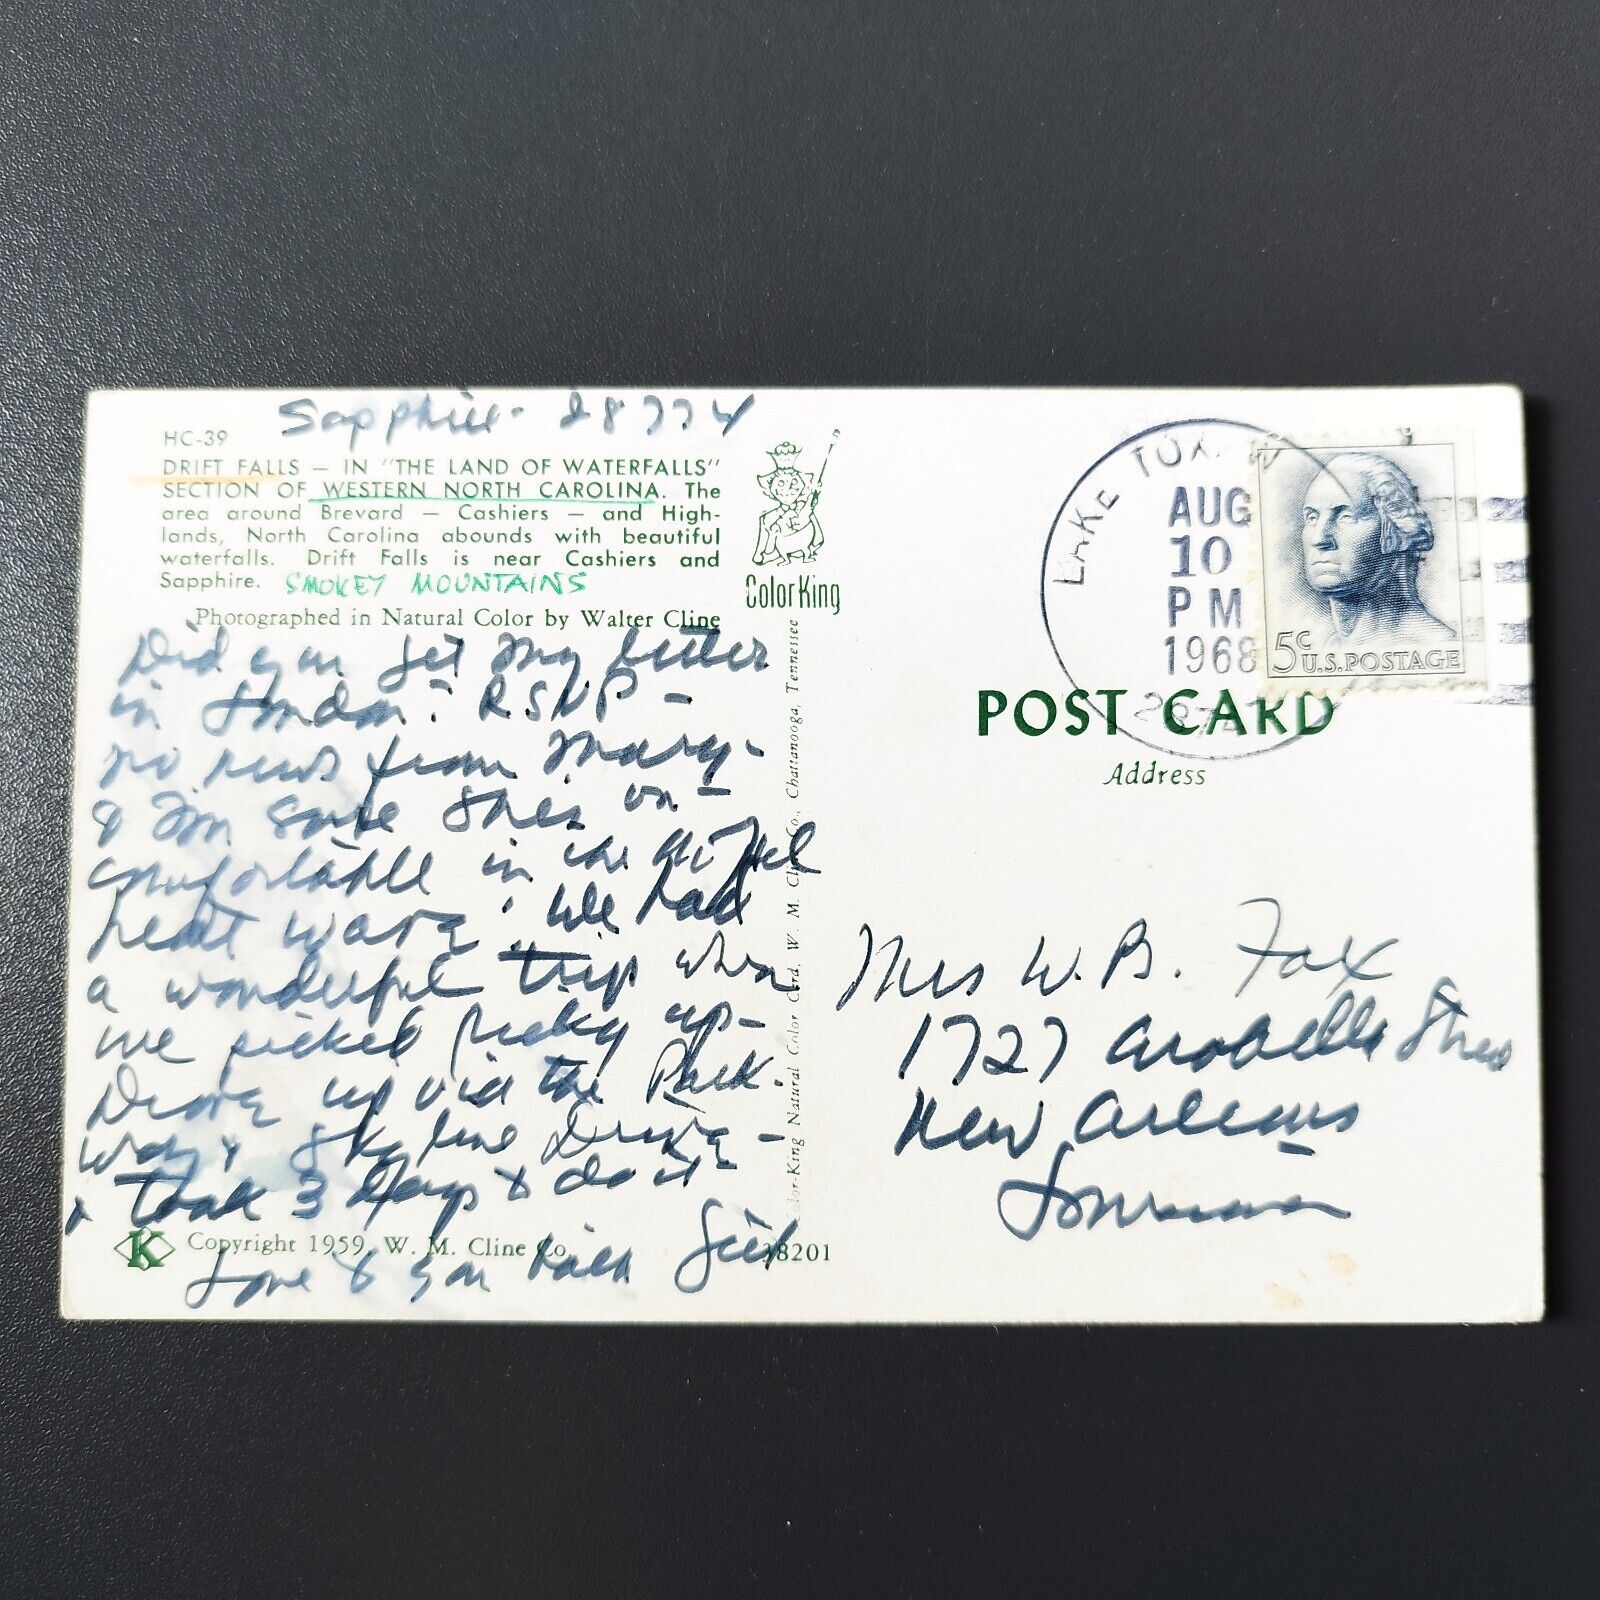 Sapphire - 28774
HC-39
DRIFT FALLS — IN "THE LAND OF WATERFALLS"
SECTION OF WESTERN NORTH CAROLINA. The
area around Brevard — Cashiers — and High-
lands, North Carolina abounds with beautiful
waterfalls. Drift Falls is near Cashiers and
Sapphire. SMOKEY MOUNTAINS
Photographed in Natural Color by Walter Cline
ColorKing
Did you get my letter
in London? RSVP -
no news from Mary -
& I'm sure she's un-
comfortable in the
heat wave. We had
a wonderful trip when
we picked up -
Drove up via the Park-
way & Skyline Drive -
& took 3 days to do it
Love to you both
K
Copyright 1959, W. M. Cline Co.
38201
Color-King Natural Color Card, W. M. Cline Co., Chattanooga, Tennessee
LAKE TOX
AUG
10
PM
1968
5c
U.S. POSTAGE
POST CARD
Address
Mrs W. B. Fox
1727 Arabella Street
New Orleans
Louisiana